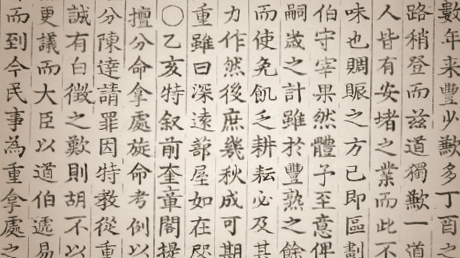 數年來豐少歉多丁酉之
路稍登而茲道獨歉一道
人皆有安堵之業而此不
味也賙賑之方已即區劃
伯守宰果然體予至意俾
嗣歲之計雖於豐熟之餘
而使免飢乏耕耘必及其
力作然後庶幾秋成可期
重雖曰深遠蔀屋如在咫
○乙亥特叙前奎章閣提
擅分命拿處旋命考例以
分陳達請罪因特教從重
誠有白徵之歎則胡不以
更議而大臣以道伯遞易
而到今民事為重拿處之